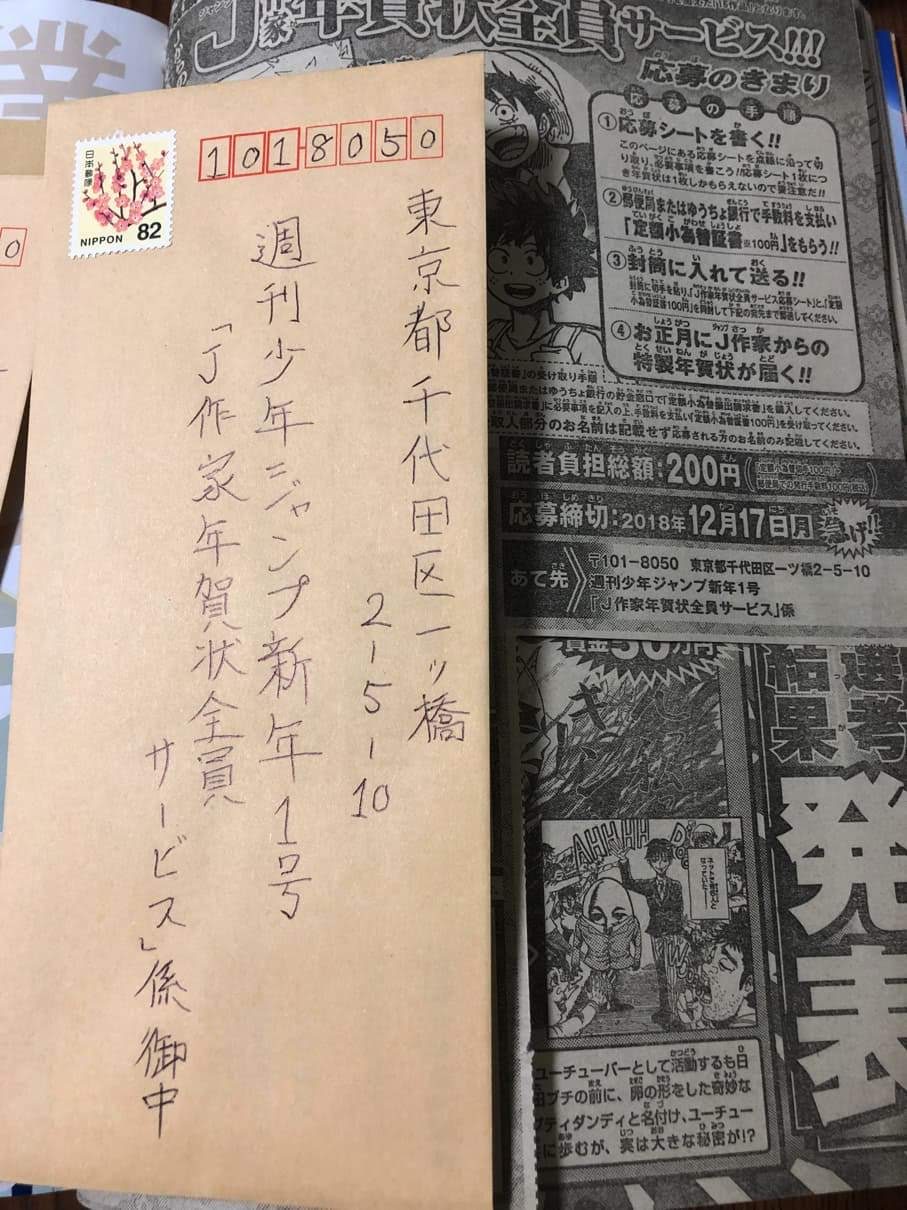 日本郵便
NIPPON 82
1018050
東京都千代田区一ッ橋
2-5-10
週刊少年ジャンプ新年1号
「J作家年賀状全員
サービス」係御中
業
0
J作家年賀状全員サービス!!!
応募のきまり
応募の手順
①応募シートを書く!!
このページにある応募シートを点線に沿って切
り取り、必要事項を書こう!!応募シート1枚につ
き年賀状は1枚しかもらえないので要注意だ!!
②郵便局またはゆうちょ銀行で手数料を支払い
「定額小為替証書※100円」をもらう!!
③封筒に入れて送る!!
封筒に切手を貼り、「J作家年賀状全員サービス応募シート」と、「定額
小為替証書100円」を同封して下記の宛先まで郵送してください。
④お正月にJ作家からの
特製年賀状が届く!!
替証書」の受け取り手順
郵便局またはゆうちょ銀行の貯金窓口で「定額小為替振出請求書」を購入してください。
に必要事項を記入の上、手数料を支払い「定額小為替証書100円」を受け取ってください。
取人部分のお名前は記載せず応募される方のお名前のみ記載してください。
読者負担総額:200円
応募締切:2018年12月17日月
急げ!!
あて先
〒101-8050 東京都千代田区一ツ橋2-5-10
週刊少年ジャンプ新年1号
「J作家年賀状全員サービス」係
賞金50万円
選考
結果
発表
AHHHH
ユーチューバーとして活動するも日
田ブチの前に、卵の形をした奇妙な
グティダンディと名付け、ユーチュー
に歩むが、実は大きな秘密が!?